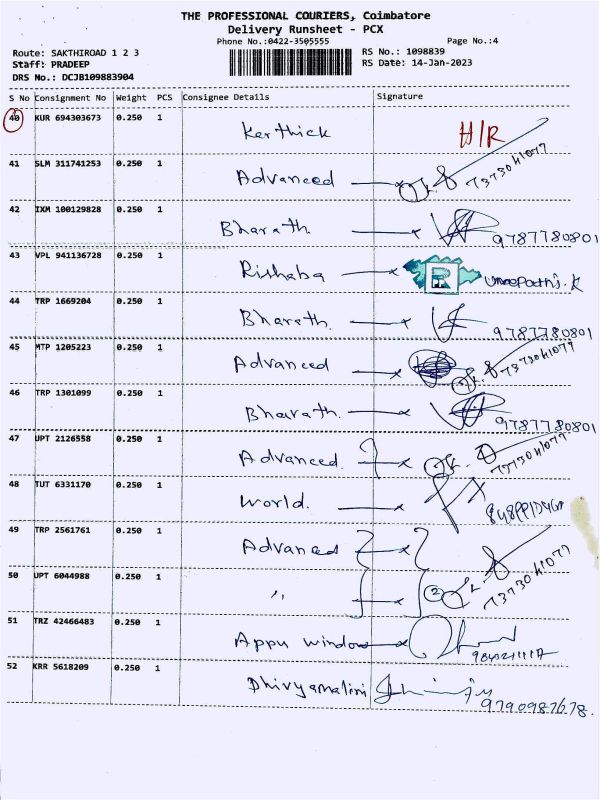 THE PROFESSIONAL COURIERS, Coimbatore
Delivery Runsheet - PCX
Phone No.:0422-3505555 Page No.:4
Route: SAKTHIROAD 1 2 3 RS No.: 1098839
Staff: PRADEEP RS Date: 14-Jan-2023
DRS No.: DCJB109883904
S No Consignment No Weight PCS Consignee Details Signature
40 KUR 694303673 0.250 1 Karthick H/R
41 SLM 311741253 0.250 1 Advanced 7373041077
42 IXM 100129828 0.250 1 Bharath 9787780801
43 VPL 941136728 0.250 1 Rishaba
44 TRP 1669204 0.250 1 Bharath 9787780801
45 MTP 1205223 0.250 1 Advanced 7373041077
46 TRP 1301099 0.250 1 Bharath 9787780801
47 UPT 2126558 0.250 1 Advanced 7373041077
48 TUT 6331170 0.250 1 World
49 TRP 2561761 0.250 1 Advanced
50 UPT 6044988 0.250 1 " 2 7373041077
51 TRZ 42466483 0.250 1 Appu window
52 KRR 5618209 0.250 1 Dhivyamalini 9790987678.